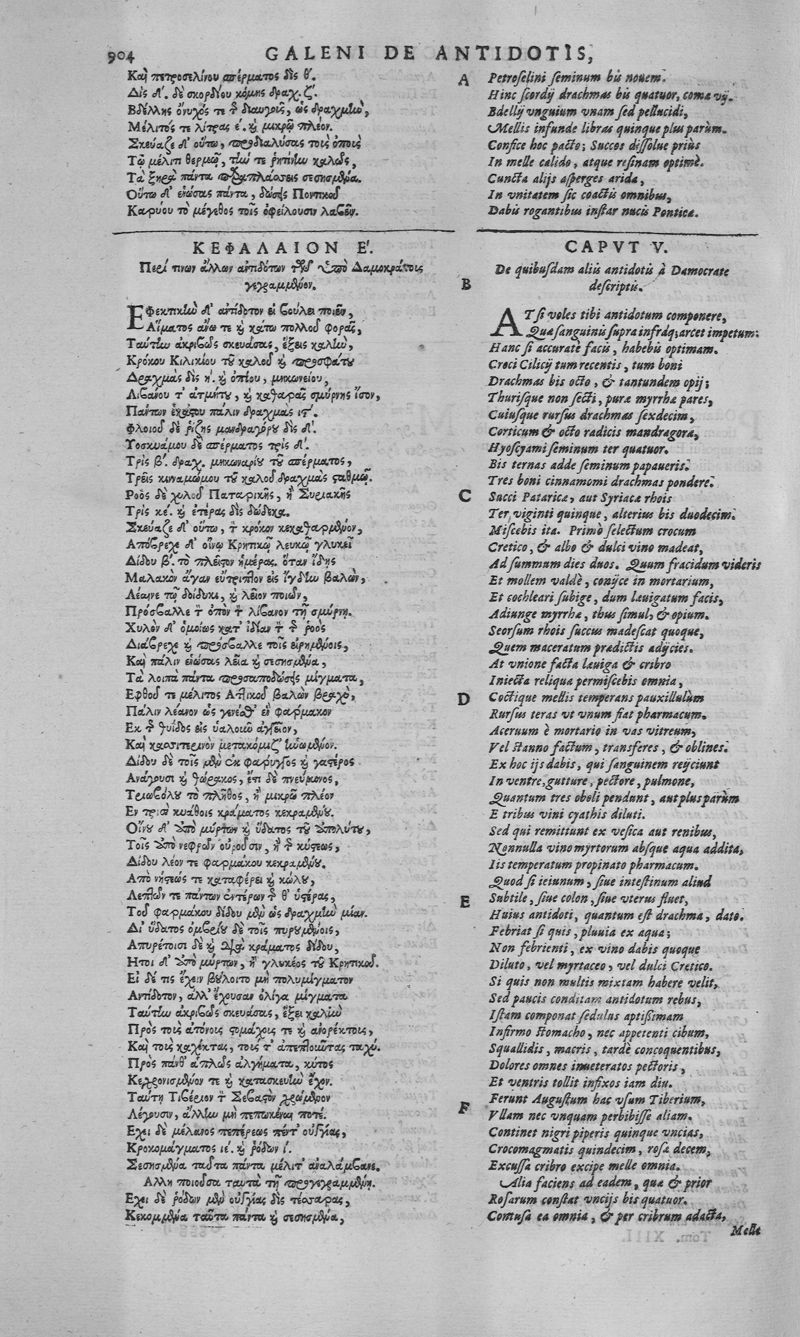 904 GALENI DE ANTIDOTIS,
Καὶ πετροσελίνου σπέρματος δὶς θ΄.
Δὶς δ΄. δὲ σκορδίου κόμης δραχ. ζ΄.
Βδέλλης ὄνυχός τε τ διαυγοῦς, ὡς δραχμὴν,
Μέλιτός τε λίτρας ε. καὶ μικρῷ πλέον.
Σκεύαζε δ' οὕτω, προδιαλύσας τοὺς ὀποὺς
Τῷ μέλιτι θερμῷ, τήν τε ῥητίνην καλῶς,
Τὰ ξηρὰ πάντα σεσησμένα.
Οὕτω δ' ἑνώσας πάντα, δώσεις Ποντικοῦ
Καρύου τὸ μέγεθος τοῖς ὀφείλουσιν λαβεῖν.
ΚΕΦΑΛΑΙΟΝ Ε΄.
Περί τινων ἄλλων ἀντιδότων τῶν ὑπὸ Δαμοκράτους
γεγραμμένων.
Ἐφεκτικὴν δ' ἀντίδοτον εἰ βούλει ποιεῖν,
Αἵματος ἄνω τε καὶ κάτω πολλοῦ φορᾶς,
Ταύτην ἀκριβῶς σκευάσας, ἕξεις καλὴν,
Κρόκου Κιλικίου τοῦ καλοῦ καὶ προσφάτου
Δραχμὰς δὶς η΄. καὶ ὀπίου, μηκωνείου,
Λιβάνου τ' ἀτμήτου, καὶ καθαρᾶς σμύρνης ἴσον,
Πάντων ἑκάστου πάλιν δραχμὰς ιϛ΄.
Φλοιοῦ δὲ ῥίζης μανδραγόρου δὶς δ΄.
Ὑοσκυάμου δὲ σπέρματος τρὶς δ΄.
Τρὶς β΄. δραχ. μηκωναρίου τοῦ σπέρματος,
Τρεῖς κυναμώμου τοῦ καλοῦ δραχμὰς σταθμῷ.
Ῥοὸς δὲ χυλοῦ Παταρικῆς, ἢ Συριακῆς
Τρὶς κε΄. καὶ ἑτέρας δὶς δώδεκα.
Σκεύαζε δ' οὕτω, τ κρόκον κεκαθαρμένον,
Ἀπόβρεχε δ' οἴνῳ Κρητικῷ λευκῷ γλυκεῖ
Δίδου β΄. τὸ πλεῖστον ἡμέρας. ὅταν ἴδῃς
Μαλακὸν ἄγαν εὔτριπτον εἰς ἰγδίω βαλὼν,
Λέαινε τῷ δοίδυκι, καὶ λεῖον ποιῶν,
Πρόσβαλλε τ ὀπὸν τ λίβανον τῇ σμύρνῃ.
Χυλὸν δ' ὁμοίως κατ' ἰδίαν τ τ ῥοὸς
Διάβρεχε καὶ πρόσβαλλε τοῖς εἰρημένοις,
Καὶ πάλιν ἑνώσας λεῖα καὶ σεσησμένα,
Τὰ λοιπὰ πάντα προσαποδώσεις μίγματα,
Ἑφθοῦ τε μέλιτος Ἀττικοῦ βαλὼν βραχὺ,
Πάλιν λέανον ὡς γένηθ' ἓν φάρμακον
Ἐκ τ θυΐδος εἰς ὑαλοῦν ἀγγεῖον,
Καὶ κασσιτερινὸν μετακόμιζ'
Δίδου δὲ τοῖς μὲν ἐκ φάρυγγος καὶ γαστέρος
Ἀνάγουσι καὶ θώρακος, ἔτι δὲ πνεύμονος,
Τριωβόλου τὸ πλῆθος, ἢ μικρῷ πλέον
Ἐν τρισὶ κυάθοις κράματος κεκραμένου.
Οἴνου δ' ἀπὸ μύρτων καὶ ὕδατος
Τοῖς ἀπὸ νεφρῶν οὐροῦσιν, ἢ τ κύστεως,
Δίδου λέον τε φαρμάκου κεκραμένου.
Ἀπὸ νήστεώς τε καταφέρει καὶ κώλου,
Λεπτῶν τε πάντων ἐντέρων τ θ' ὑστέρας,
Τοῦ φαρμάκου δίδου μὲν ὡς δραχμὴν μίαν.
Δι' ὕδατος ὀμβρίου δὲ τοῖς πυρουμένοις,
Ἀπυρέτοισι δὲ καὶ διὰ κράματος δίδου,
Ἤτοι δ' ἀπὸ μύρτων, ἢ γλυκέος τοῦ Κρητικοῦ.
Εἰ δέ τις ἔχειν βούλοιτο μὴ πολυμίγματον
Ἀντίδοτον, ἀλλ' ἔχουσαν ὀλίγα μίγματα
Ταύτην ἀκριβῶς σκευάσας, ἕξει καλὴν
Πρὸς τοὺς ἀτόνους στομάχους τε καὶ ἀνορέκτους,
Καὶ τοὺς καχέκτας, τούς τ' ἀπεπτοῦντας ταχύ.
Πρὸς πάνθ' ἁπλῶς ἀλγήματα, κύτος
Κεχρονισμένον τε καὶ κατασκευὴν ἔχον.
Ταύτῃ Τιβέριον τ Σεβαστὸν χρώμενον
Λέγουσιν, ἄλλην μὴ πεπωκέναι ποτέ.
Ἔχει δὲ μέλανος πεπέρεως πέντ' οὐγγίας,
Κροκομάγματος ιε΄. καὶ ῥόδων ι΄.
Σεσησμένα ταῦτα πάντα μέλιτ' ἀναλάμβανε.
Ἄλλη ποιοῦσα ταὐτὰ τῇ προγεγραμμένῃ.
Ἔχει δὲ ῥόδων μὲν οὐγγίας δὶς τέσσαρας,
Κεκομμένα ταῦτα πάντα καὶ σεσησμένα,
A Petroselini seminum bis nouem.
Hinc scordij drachmas bis quatuor, coma vij.
Bdellij vnguium vnam sed pellucidi,
Mellis infunde libras quinque plus parùm.
Confice hoc pacto; Succos dissolue prius
In melle calido, atque resinam optimè.
Cuncta alijs asperges arida,
In vnitatem sic coactis omnibus,
Dabis rogantibus instar nucis Pontica.
CAPVT V.
B De quibusdam aliis antidotis à Damocrate
descriptis.
AT si voles tibi antidotum componere,
Quæ sanguinis supra infráq; arcet impetum:
Hanc si accuratè facis, habebis optimam.
Croci Cilicij tum recentis, tum boni
Drachmas bis octo, & tantundem opij;
Thurisque non secti, puræ myrrhæ pares,
Cuiusque rursus drachmas sexdecim,
Corticum & octo radicis mandragoræ,
Hyoscyami seminum ter quatuor.
Bis ternas adde seminum papaueris.
Tres boni cinnamomi drachmas pondere.
C Succi Pataricæ, aut Syriacæ rhois
Ter, viginti quinque, alterius bis duodecim.
Miscebis ita. Primò selectum crocum
Cretico, & albo & dulci vino madeat,
Ad summum dies duos. Quum fracidum videris
Et mollem valdè, conijce in mortarium,
Et cochleari subige, dum lauigatum facis,
Adiunge myrrhæ, thus simul, & opium.
Seorsum rhois succus madescat quoque,
Quem maceratum prædictis adijcies.
At vnione facta lauiga & cribro
Iniecta reliqua permiscebis omnia,
D Coctique mellis temperans pauxillulùm
Rursus teras vt vnum fiat pharmacum.
Aceruum è mortario in vas vitreum,
Vel stanno factum, transferes, & oblines.
Ex hoc ijs dabis, qui sanguinem reijciunt
In ventre, gutture, pectore, pulmone,
Quantum tres oboli pendunt, aut plus parùm
E tribus vini cyathis diluti.
Sed qui remittunt ex vesica aut renibus,
Nonnulla vino myrtorum absque aqua addita,
Iis temperatum propinato pharmacum.
Quod si ieiunum, siue intestinum aliud
E Subtile, siue colon, siue vterus fluet,
Huius antidoti, quantum est drachma, dato.
Febriat si quis, pluuia ex aqua;
Non febrienti, ex vino dabis quoque
Diluto, vel myrtaceo, vel dulci Cretico.
Si quis non multis mixtam habere velit,
Sed paucis conditam antidotum rebus,
Istam componat sedulus aptissimam
Infirmo stomacho, nec appetenti cibum,
Squallidis, macris, tardè concoquentibus,
Dolores omnes inueteratos pectoris,
Et ventris tollit infixos iam diu.
F Ferunt Augustum hac vsum Tiberium,
Vllam nec vnquam perbibisse aliam.
Continet nigri piperis quinque vncias,
Crocomagmatis quindecim, rosa decem,
Excussa cribro excipe melle omnia.
Alia faciens ad eadem, quæ & prior
Rosarum constat vncijs bis quatuor.
Contusa ea omnia, & per cribrum adacta,
Melle